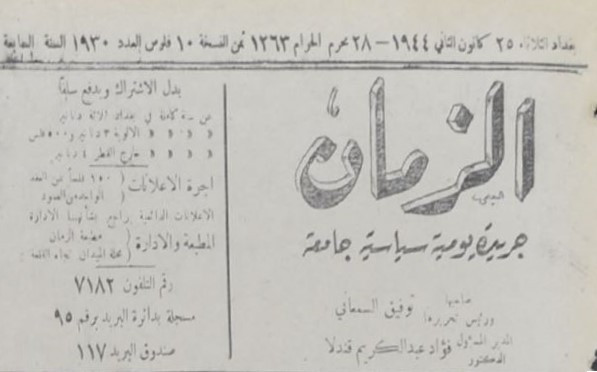 بغداد الثلاثاء ٢٥ كانون الثاني ١٩٤٤ — ٢٨ محرم الحرام ١٣٦٣ ثمن النسخة ١٠ فلوس العدد ١٩٣٠ السنة السابعة
الزمان
جريدة يومية سياسية جامعة
صاحبها
ورئيس تحريرها
توفيق السمعاني
المدير المسؤول
الدكتور
فؤاد عبدالكريم قندلا
بدل الاشتراك ويدفع سلفا
عن سنة كاملة في بغداد
« « « الالوية ٣ دنانير و ٥٠٠ فلس
« « « خارج القطر ٤ دنانير
اجرة الاعلانات ( ١٥٠ فلسا عن العقد
الواحد من العمود
الاعلانات الدائمية يراجع بشأنها الادارة
المطبعة والادارة ( مطبعة الزمان
محلة الميدان تجاه القلعة
رقم التلفون ٧١٨٢
مسجلة بدائرة البريد برقم ٩٥
صندوق البريد ١١٧